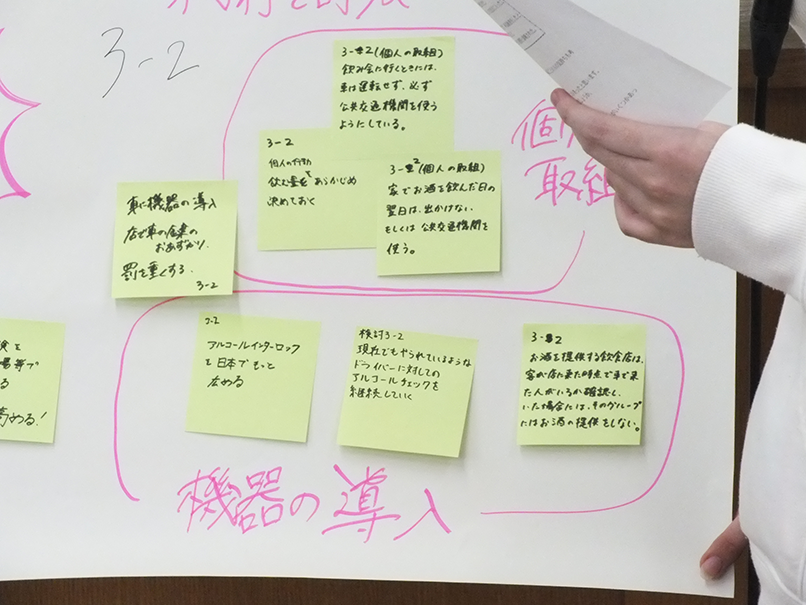 3-2
個人の
取組
3-2(個人の取組)
飲み会に行くときには、
車は運転せず、必ず
公共交通機関を使う
ようにしている。
3-2
個人の行動
飲む量をあらかじめ
決めておく
3-2(個人の取組)
家でお酒を飲んだ日の
翌日は、出かけない
もしくは公共交通機関を
使う。
車に機器の導入
店で車の鍵の
おあずかり、
罰を重くする。
3-2
3-2
アルコールインターロック
を日本でもっと
広める
検討3-2
現在でもやられているような
ドライバーに対しての
アルコールチェックを
継続していく
3-2
お酒を提供する飲食店は、
客が店に来た時点で車で来
た人がいるか確認し、
いた場合には、そのグループ
にはお酒の提供をしない。
機器の導入